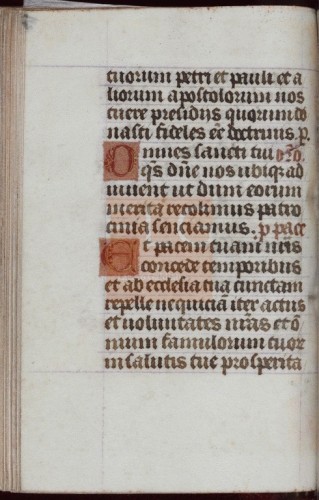 tuorum petri et pauli et a
liorum apostolorum nos
tuere presidijs quorum do
nasti fideles ee doctrinis. p.
Omnes sancti tui oro
qs dne nos ubiqz ad
iuuent ut dum eorum
merita recolimus patro
cinia senciamus. p pace
Et pacem tuam nris
concede temporibus
et ab ecclesia tua cunctam
repelle nequiciā iter actus
et uoluntates nr̄as et ō
nium famulorum tuor
in salutis tue prosperita